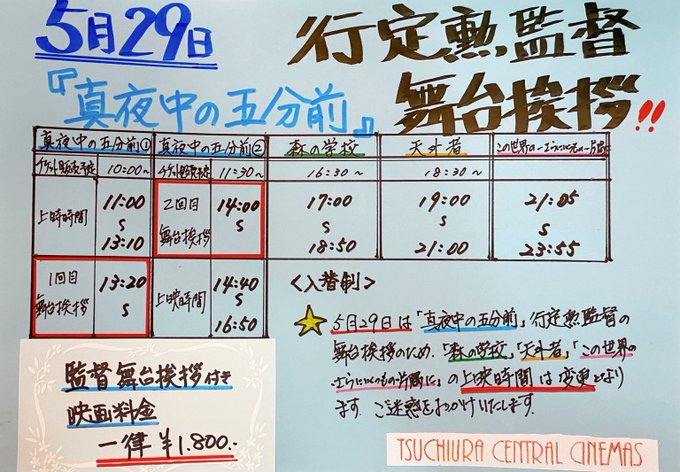 5月29日
行定勲監督
『真夜中の五分前』
舞台挨拶!!
真夜中の五分前① 真夜中の五分前② 森の学校 天外者
10:00~ 11:30~ 16:30~ 18:30~
上映時間 11:00 S 13:10
2回目 舞台挨拶 14:00 S
17:00 S 18:50
19:00 S 21:00
21:05 S 23:55
1回目 舞台挨拶 13:20 S
上映時間 14:40 S 16:50
<入替制>
5月29日は「真夜中の五分前」行定勲監督の
舞台挨拶のため、「森の学校」「天外者」「この世界の
の上映時間は変更となり
ます。ご迷惑をおかけいたします。
監督舞台挨拶付き
映画料金
一律 ¥1.800.-
TSUCHIURA CENTRAL CINEMAS